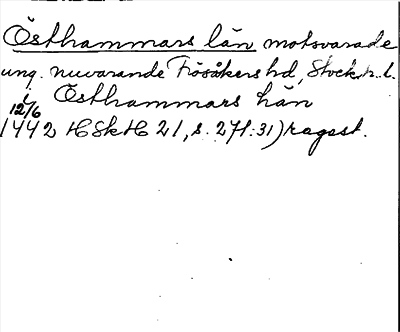 Östhammars län motsvarade
ung. nuvarande Frösåkers hd, Stock.h. l.
i Östhammars hän
12/6
1442 HSkH 21, s. 271:31) ragsst.